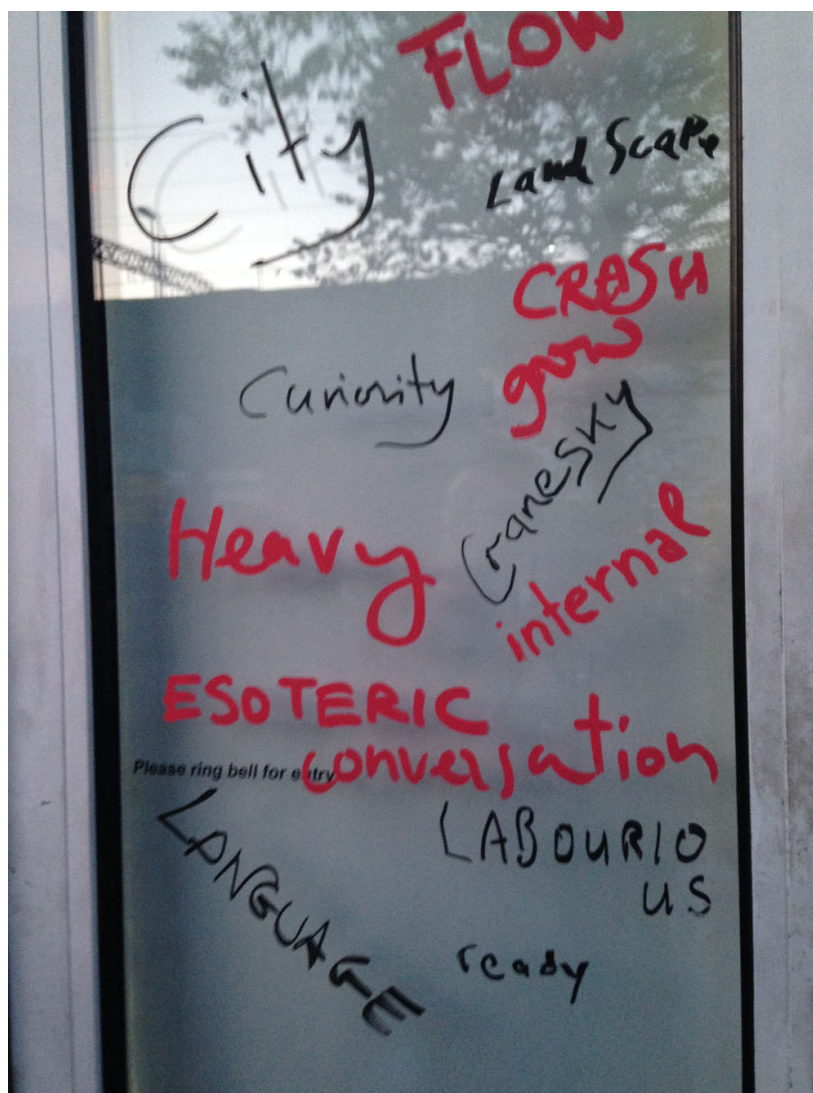 FLOW
City
Landscape
CRASH
grow
Curiosity
Cranesky
Heavy
internal
ESOTERIC
conversation
Please ring bell for entry
LANGUAGE
LABOURIO
US
ready